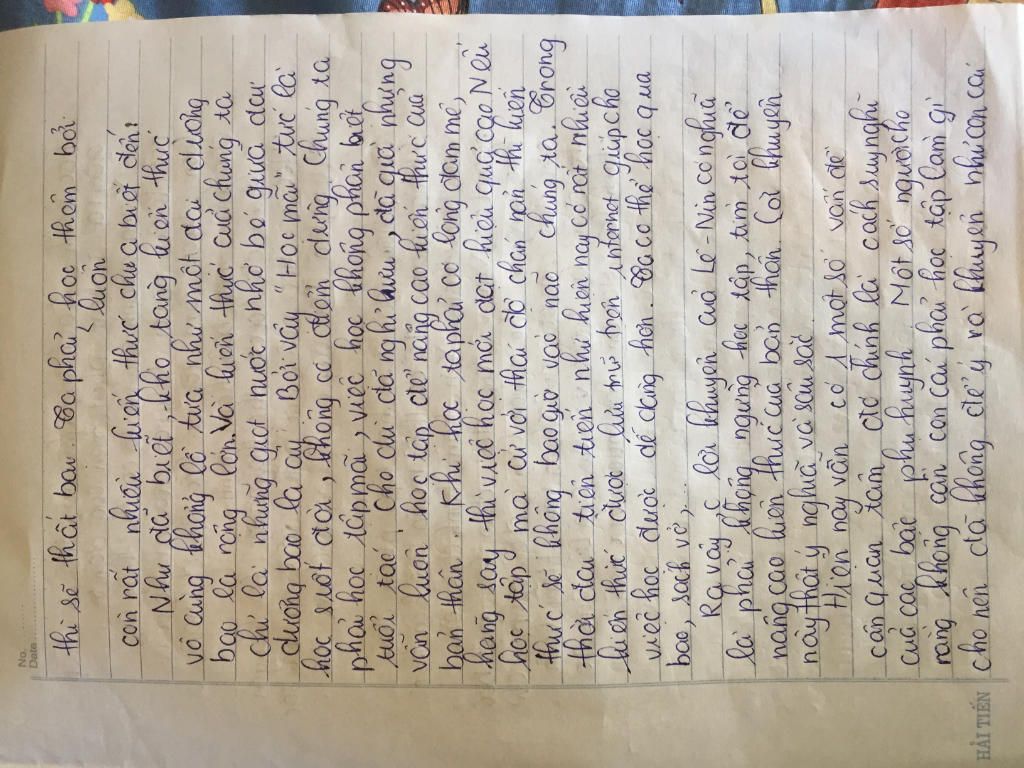 No.
Date
thì sẽ thất bại. Ta phải học thôn bởi
luôn
còn rất nhiều kiến thức chưa biết đến!
Như đã biết, kho tàng kiến thức
vô cùng khổng lồ, tựa như một đại dương
bao la rộng lớn. Và kiến thức của chúng ta
chỉ là những giọt nước nhỏ bé giữa đại
dương bao la ấy. Bởi vậy "Học mãi" tức là
học suốt đời, không có điểm dừng. Chúng ta
phải học tập mãi, việc học không phân biệt
tuổi tác. Cho dù đã nghỉ hưu, đã già nhưng
vẫn luôn học tập để nâng cao kiến thức của
bản thân. Khi học ta phải có lòng đam mê,
hăng say thì việc học mới đạt hiệu quả cao. Nếu
học tập mà cứ với thái độ chán nản thì kiến
thức sẽ không bao giờ vào não chúng ta. Trong
thời đại tiên tiến như hiện nay có rất nhiều
kiến thức được lưu trữ trên internet giúp cho
việc học được dễ dàng hơn. Ta có thể học qua
báo, sách vở,...
Ra vậy, lời khuyên của Lê-Nin có nghĩa
là phải không ngừng học tập, tìm tòi để
nâng cao kiến thức của bản thân. Lời khuyên
này thật ý nghĩa và sâu sắc
Hiện nay vẫn có 1 một số vấn đề
cần quan tâm đó chính là cách suy nghĩ
của các bậc phụ huynh. Một số người cho
rằng không cần con cái phải học tập làm gì
cho nên đã không để ý và khuyên nhủ con cái
HẢI TIẾN